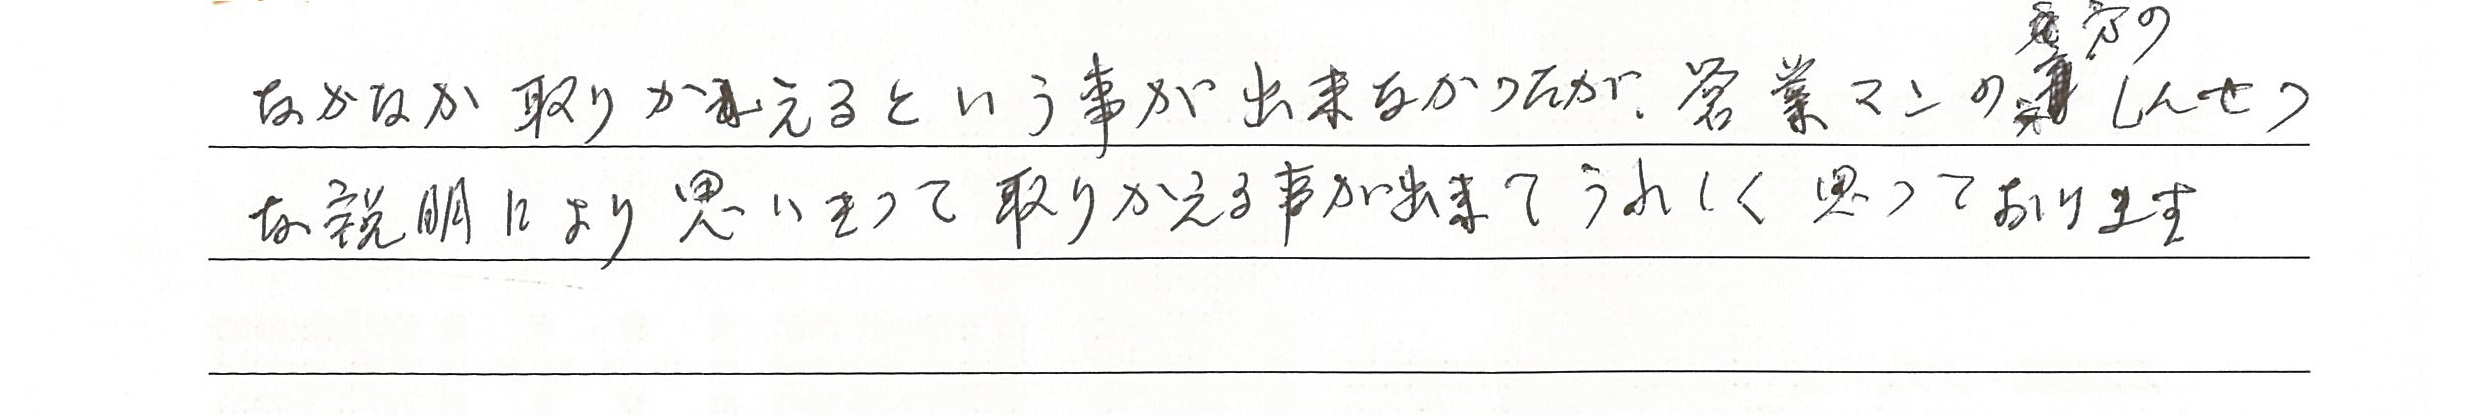 なかなか取りかえるという事が出来なかったが、営業マンの方のしんせつ
な説明により思いきって取りかえる事が出来てうれしく思っております